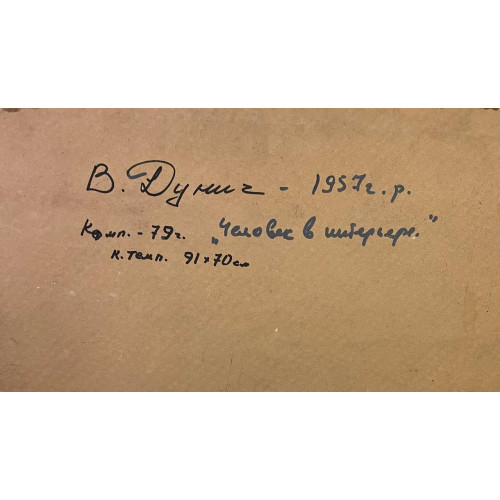 В. Дунич - 1957г.р.
Комп. - 79г. „Человек в интерьере."
к. темп. 91×70см